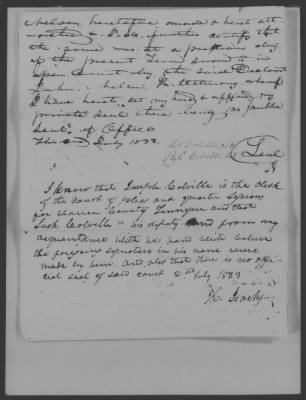 Nelson heretofore made & here att
& I do further certify that
the same was at a previous day
of the present Term sworn to in
open Court by the said Declarant
John Nelson. In testimony whereof
I have here set my hand & affixed my
private seal there being no public
seal of office
The 2nd July 1833.
Jos Colville clk
By L. Colville D.C. Seal
I know that Joseph Colville is the clerk
of the Court of pleas and quarter sessions
for Warren County Tennessee and that
Colville is his deputy and from my
acquaintance with his hand write believe
the foregoing signatures in his name were
made by him. and also that there is no offi
cial seal of said court 2nd July 1833